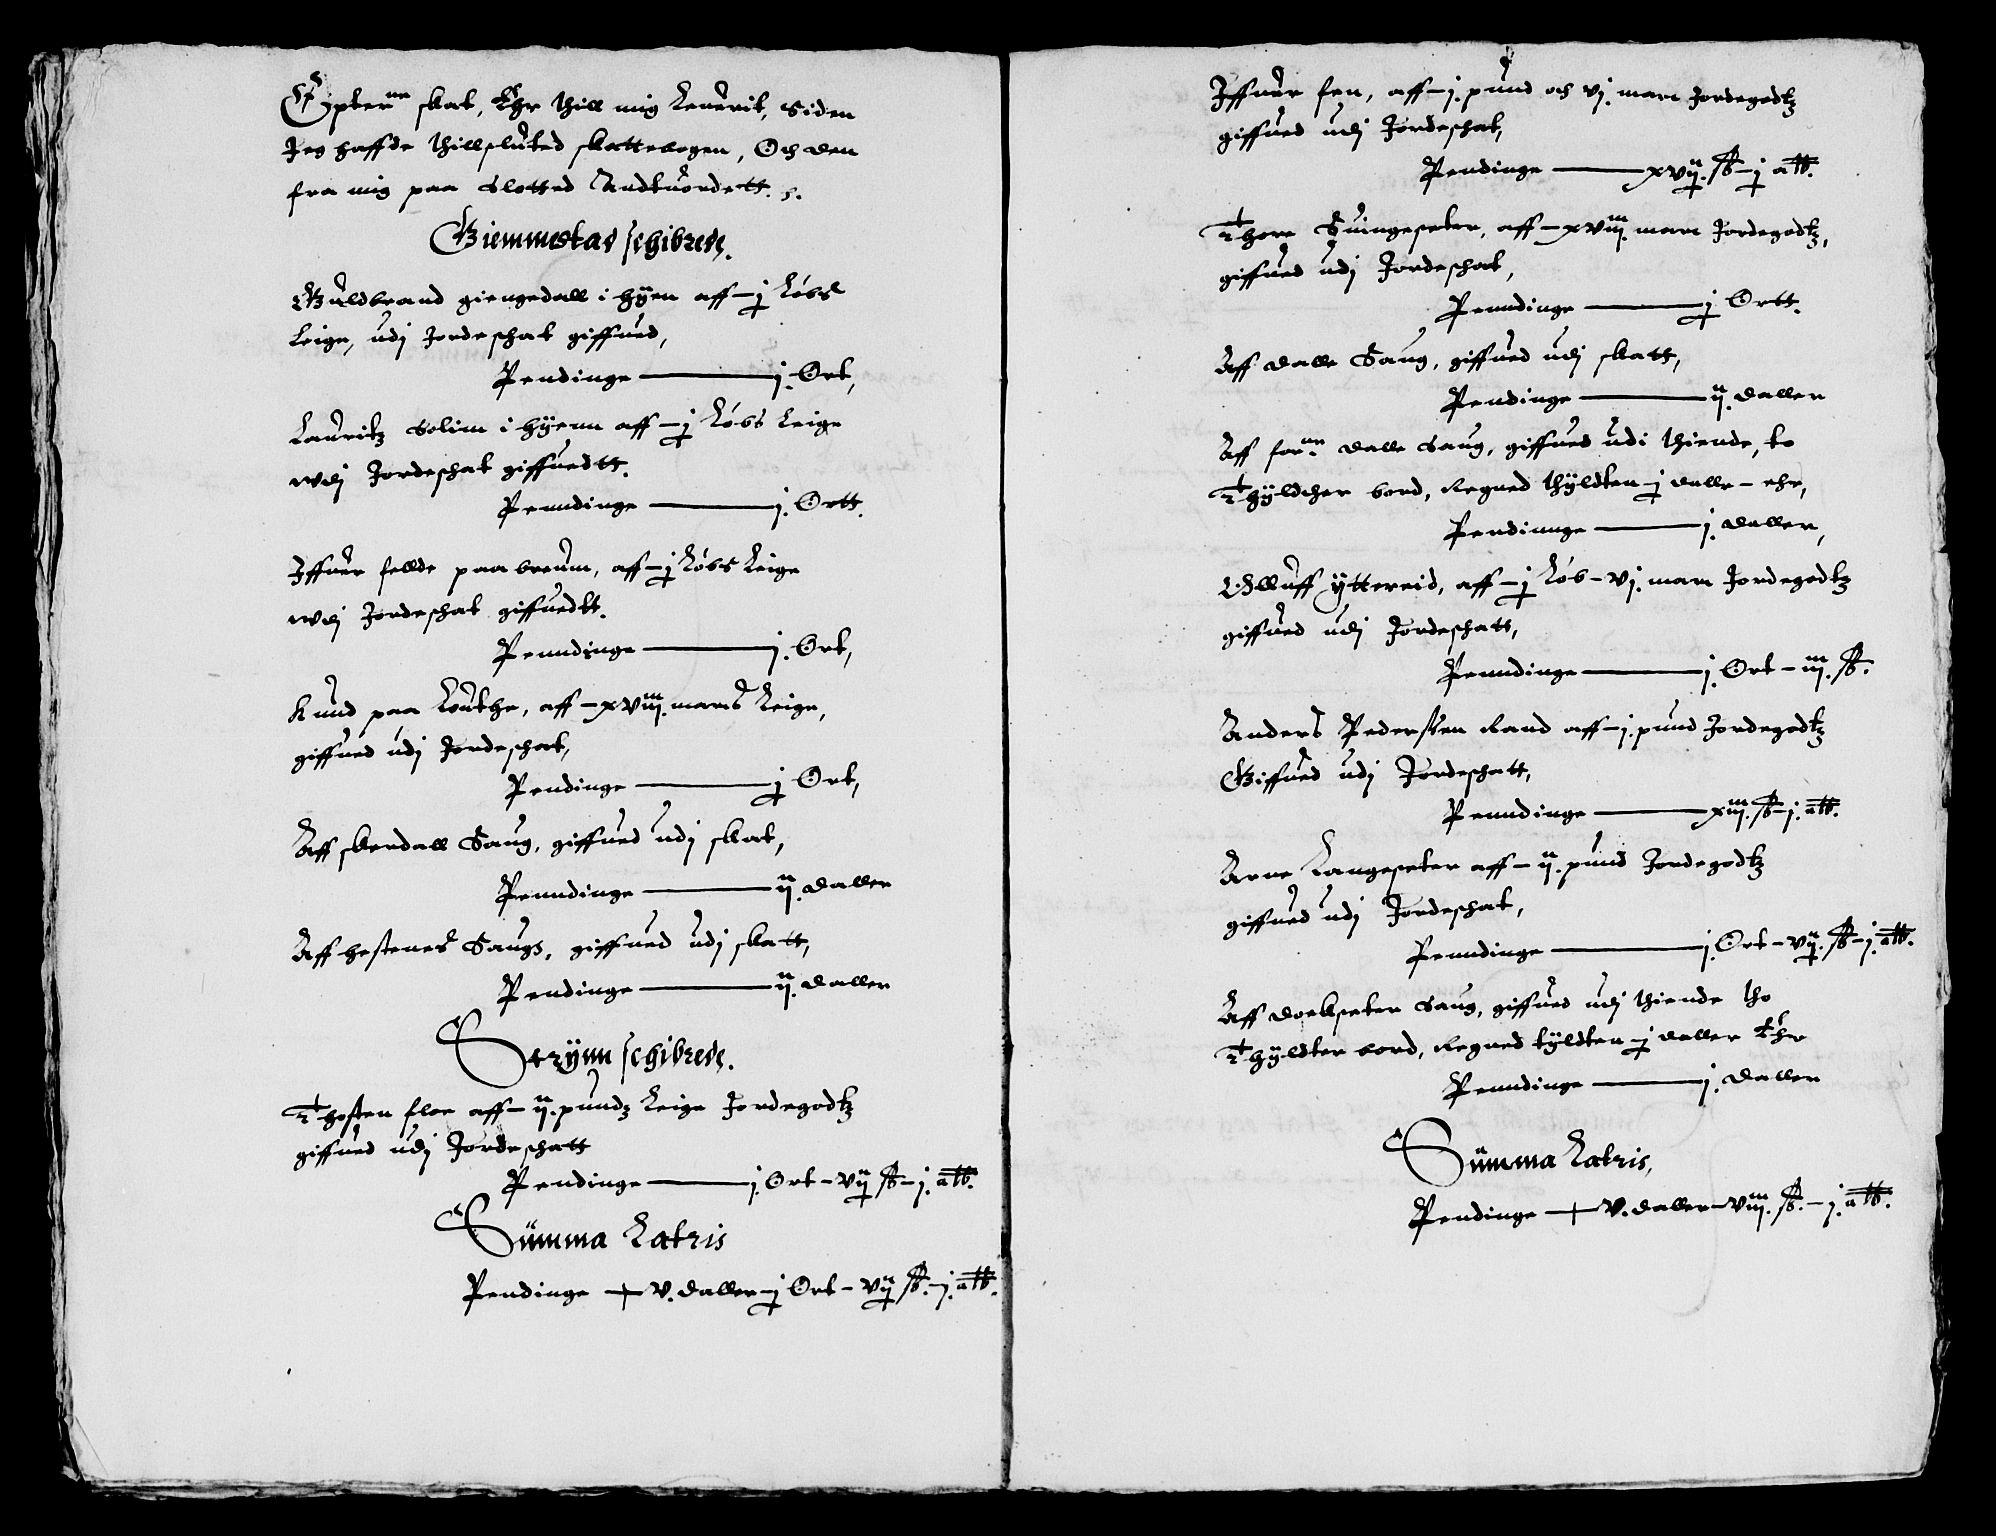 Epterne skat, Ehr thill mig Leuerit, Siden
Jeg haffde thillsluted skattebogen, Och den
fra mig paa Slotted Andtuordett. s.
Giemmestad schibrede.
Guldbrand giengedall i hÿen aff - j Løbs
Leige, udj Jordeschat giffued,
Pendinge ——— j. Ort,
Lauritz Solim i hÿenn aff - j Løbs Leige
wdj Jordeschat giffuedtt.
Penndinge ——— j. Ortt.
Iffuer fellde paa breum, aff - j Løbs Leige
wdj Jordeschat giffuedtt.
Penndinge ——— j. Ort,
Knud paa Louthe, aff - xviij. marcs Leige,
giffued udj Jordeschat,
Pendinge ——— j Ort,
Aff skerdall Saug, giffued udj skat,
Penndinge ——— ij. daller
Aff hestenes Saugs, giffued udj skatt,
Pendinge ——— ij. daller
Strÿnn schibrede.
Thosten floe aff - ij. pundz Leige Jordegodtz
giffued udj Jordeschatt
Pendinge ——— j. Ort - vij ß - j. alb.
Summa Latris
Pendinge — v. daller - j Ort - vij ß. - j. alb.
Iffuer fen, aff - j. pund och vj. marc Jordegodtz
giffued udj Jordeschat,
Pendinge ——— xvij. ß - j alb.
Thore Suingeseter, aff - xviij. marc Jordegodtz,
giffued udj Jordeschat,
Penndinge ——— j Ortt.
Aff dalle Saug, giffued udj skatt,
Pendinge ——— ij. daller
Aff forne dalle Saug, giffued udi thiende, to
Thÿldther bord, Regned thÿldten - j daller - ehr,
Pendinnge ——— j. daller,
Olluff ÿttereid, aff - j Løb - vj. marc Jordegodtz
giffued udj Jordeschatt,
Penndinge ——— j. Ort - iij. ß.
Anders Pederssen Rand aff - j. pund Jordegodtz
Giffued udj Jordeschatt,
Penndinge ——— xiij. ß - j. alb.
Arne Langeseter aff - ij. pund Jordegodtz
giffued udj Jordeschat,
Penndinge ——— j. Ort - vij. ß - j. alb.
Aff doekseter Saug, giffued udj thiende tho
Thÿldter bord, Regned tÿldten - j daller Ehr
Penndinge ——— j. daller
Summa Latris,
Pendinge — v. daller - viij. ß. - j. alb.